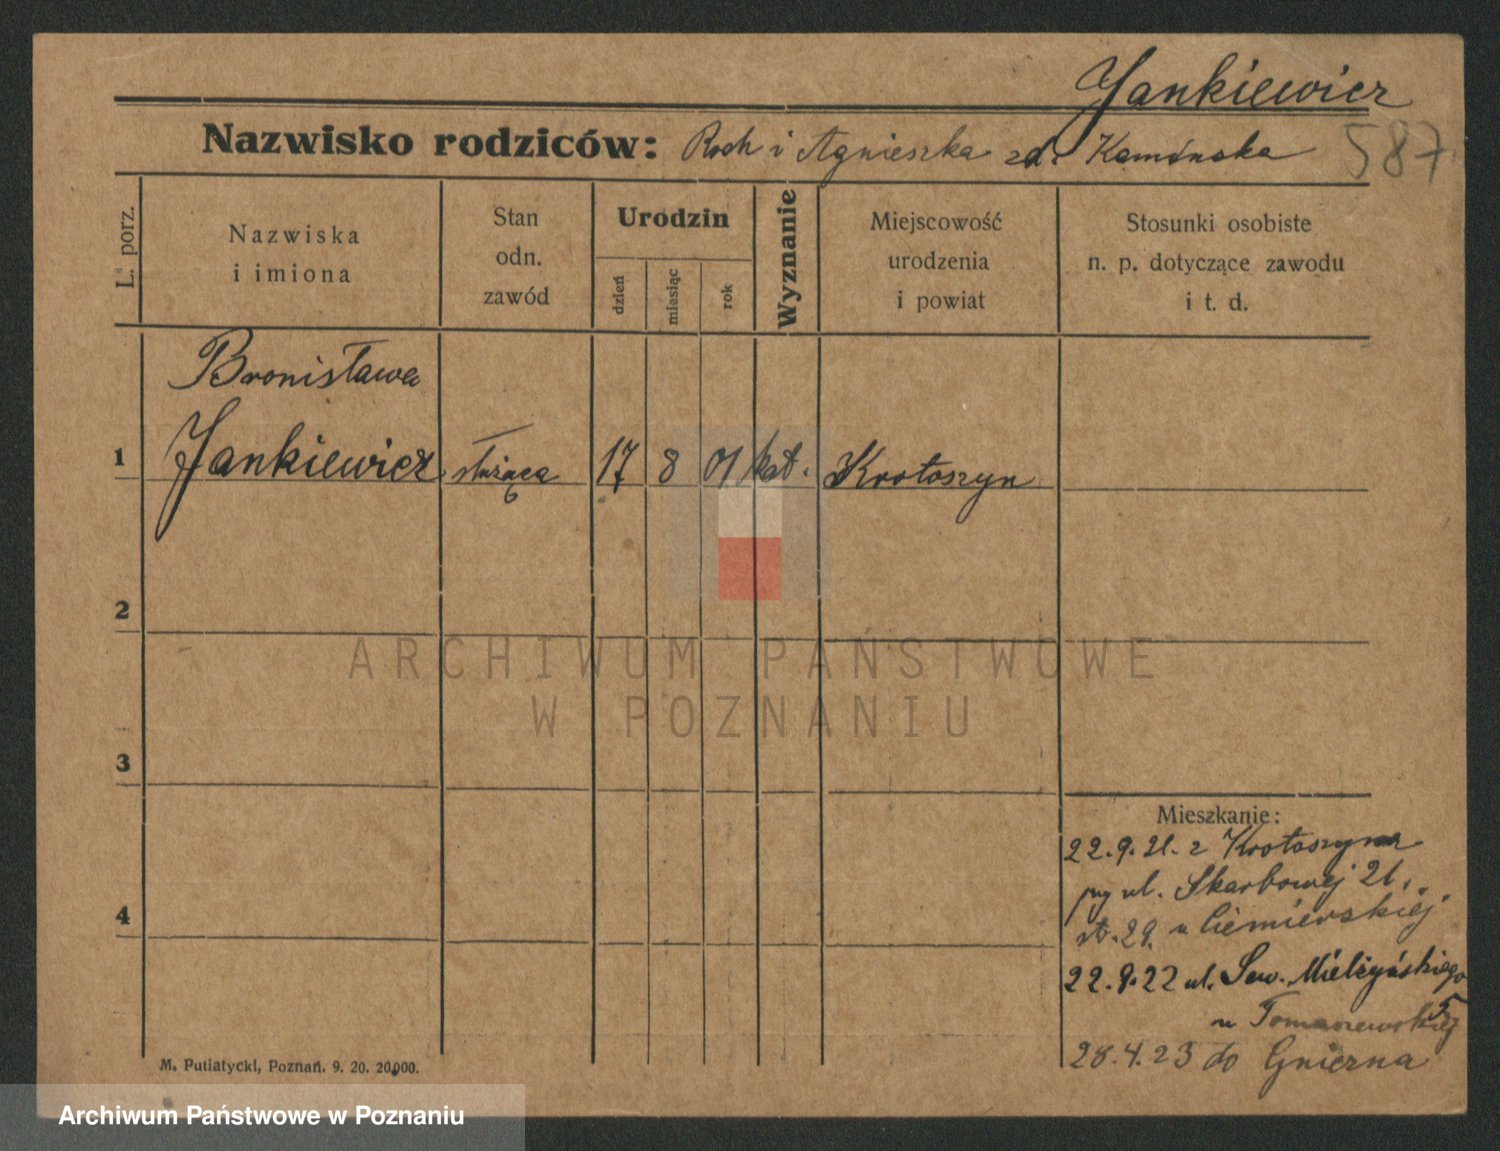 Jankiewicz
Nazwisko rodziców: Roch i Agnieszka zd. Kamińska 587
L. porz.
Nazwiska
i imiona
Stan
odn.
zawód
Urodzin
dzień
miesiąc
rok
Wyznanie
Miejscowość
urodzenia
i powiat
Stosunki osobiste
n. p. dotyczące zawodu
i t. d.
Bronisława
1 Jankiewicz służąca 17 8 01 kat. Krotoszyn
2
3
4
Mieszkanie:
22.9.21. z Krotoszyna
ul. Skarbowej 21,
29. u Ciemierskiej
22.9.22 ul. Sew. Mielżyńskiego
5
u Tomaszewskiej
28.4.23 do Gniezna
M. Putiatycki, Poznań. 9. 20. 20,000.
ARCHIWUM PAŃSTWOWE
W POZNANIU
Archiwum Państwowe w Poznaniu